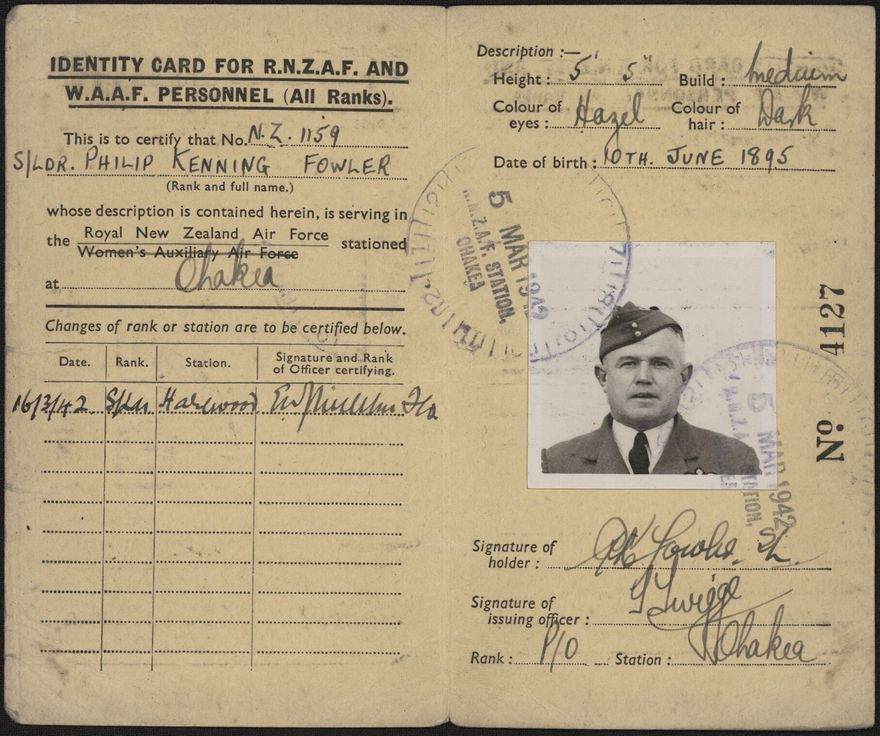 IDENTITY CARD FOR R.N.Z.A.F. AND
W.A.A.F. PERSONNEL (All Ranks).
This is to certify that No. N.Z. 1159
S/LDR. PHILIP KENNING FOWLER
(Rank and full name.)
whose description is contained herein, is serving in
the Royal New Zealand Air Force stationed
Women's Auxiliary Air Force
at Ohakea
Changes of rank or station are to be certified below.
Date. Rank. Station. Signature and Rank
of Officer certifying.
16/3/42 S/Ldr Harewood
Description :—
Height : 5' 5" Build : medium
Colour of eyes : Hazel Colour of hair : Dark
Date of birth : 10TH. JUNE 1895
5 MAR 1942
R.N.Z.A.F. STATION,
OHAKEA
No 4127
5 MAR 1942
Signature of
holder : PK Fowler. S/L.
Signature of
issuing officer :
Rank : P/O Station : Ohakea